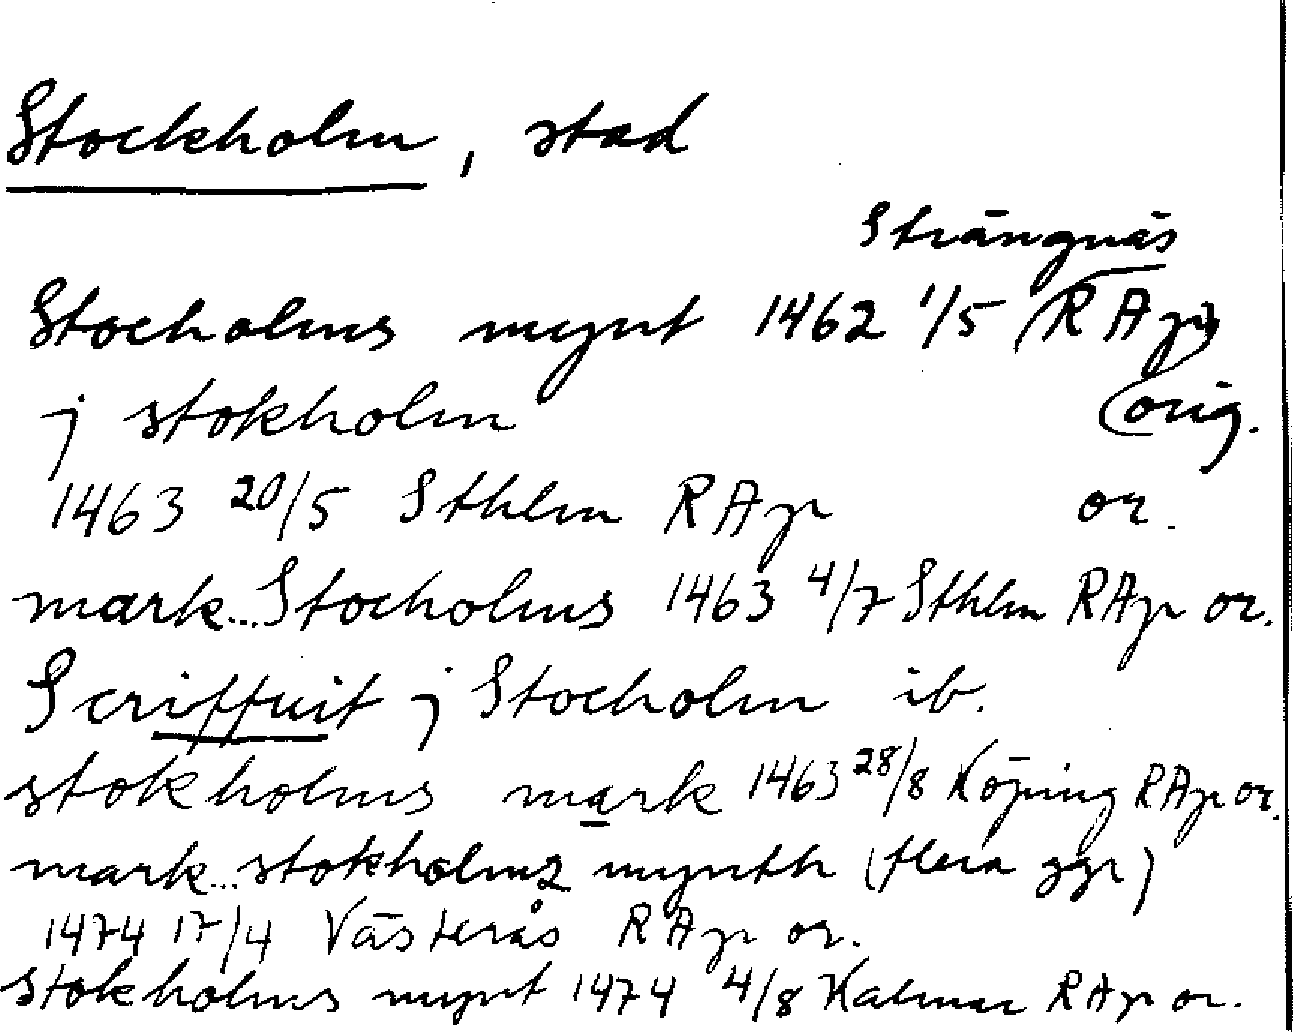 Stockholm, stad
Strängnäs
Stocholms mynt 1462 1/5 RAp
j stokholm orig.
1463 20/5 Sthlm RAp or.
mark...Stocholms 1463 4/7 Sthlm RAp or.
Scriffuit j Stocholm ib.
stokholms mark 1463 28/8 Köping RAp or.
mark...stokholmz mynth (flera ggr)
1474 17/4 Västerås RAp or.
stokholms mynt 1474 4/8 Kalmar RAp or.